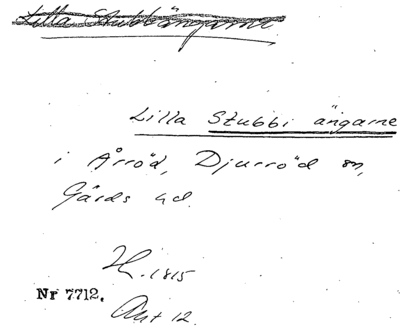 Lilla Stubbängarne
Lilla Stubbi ängarne
i Årröd, Djurröd sn,
Gärds hd.
H. 1815
Nr 7712.
Akt 12.